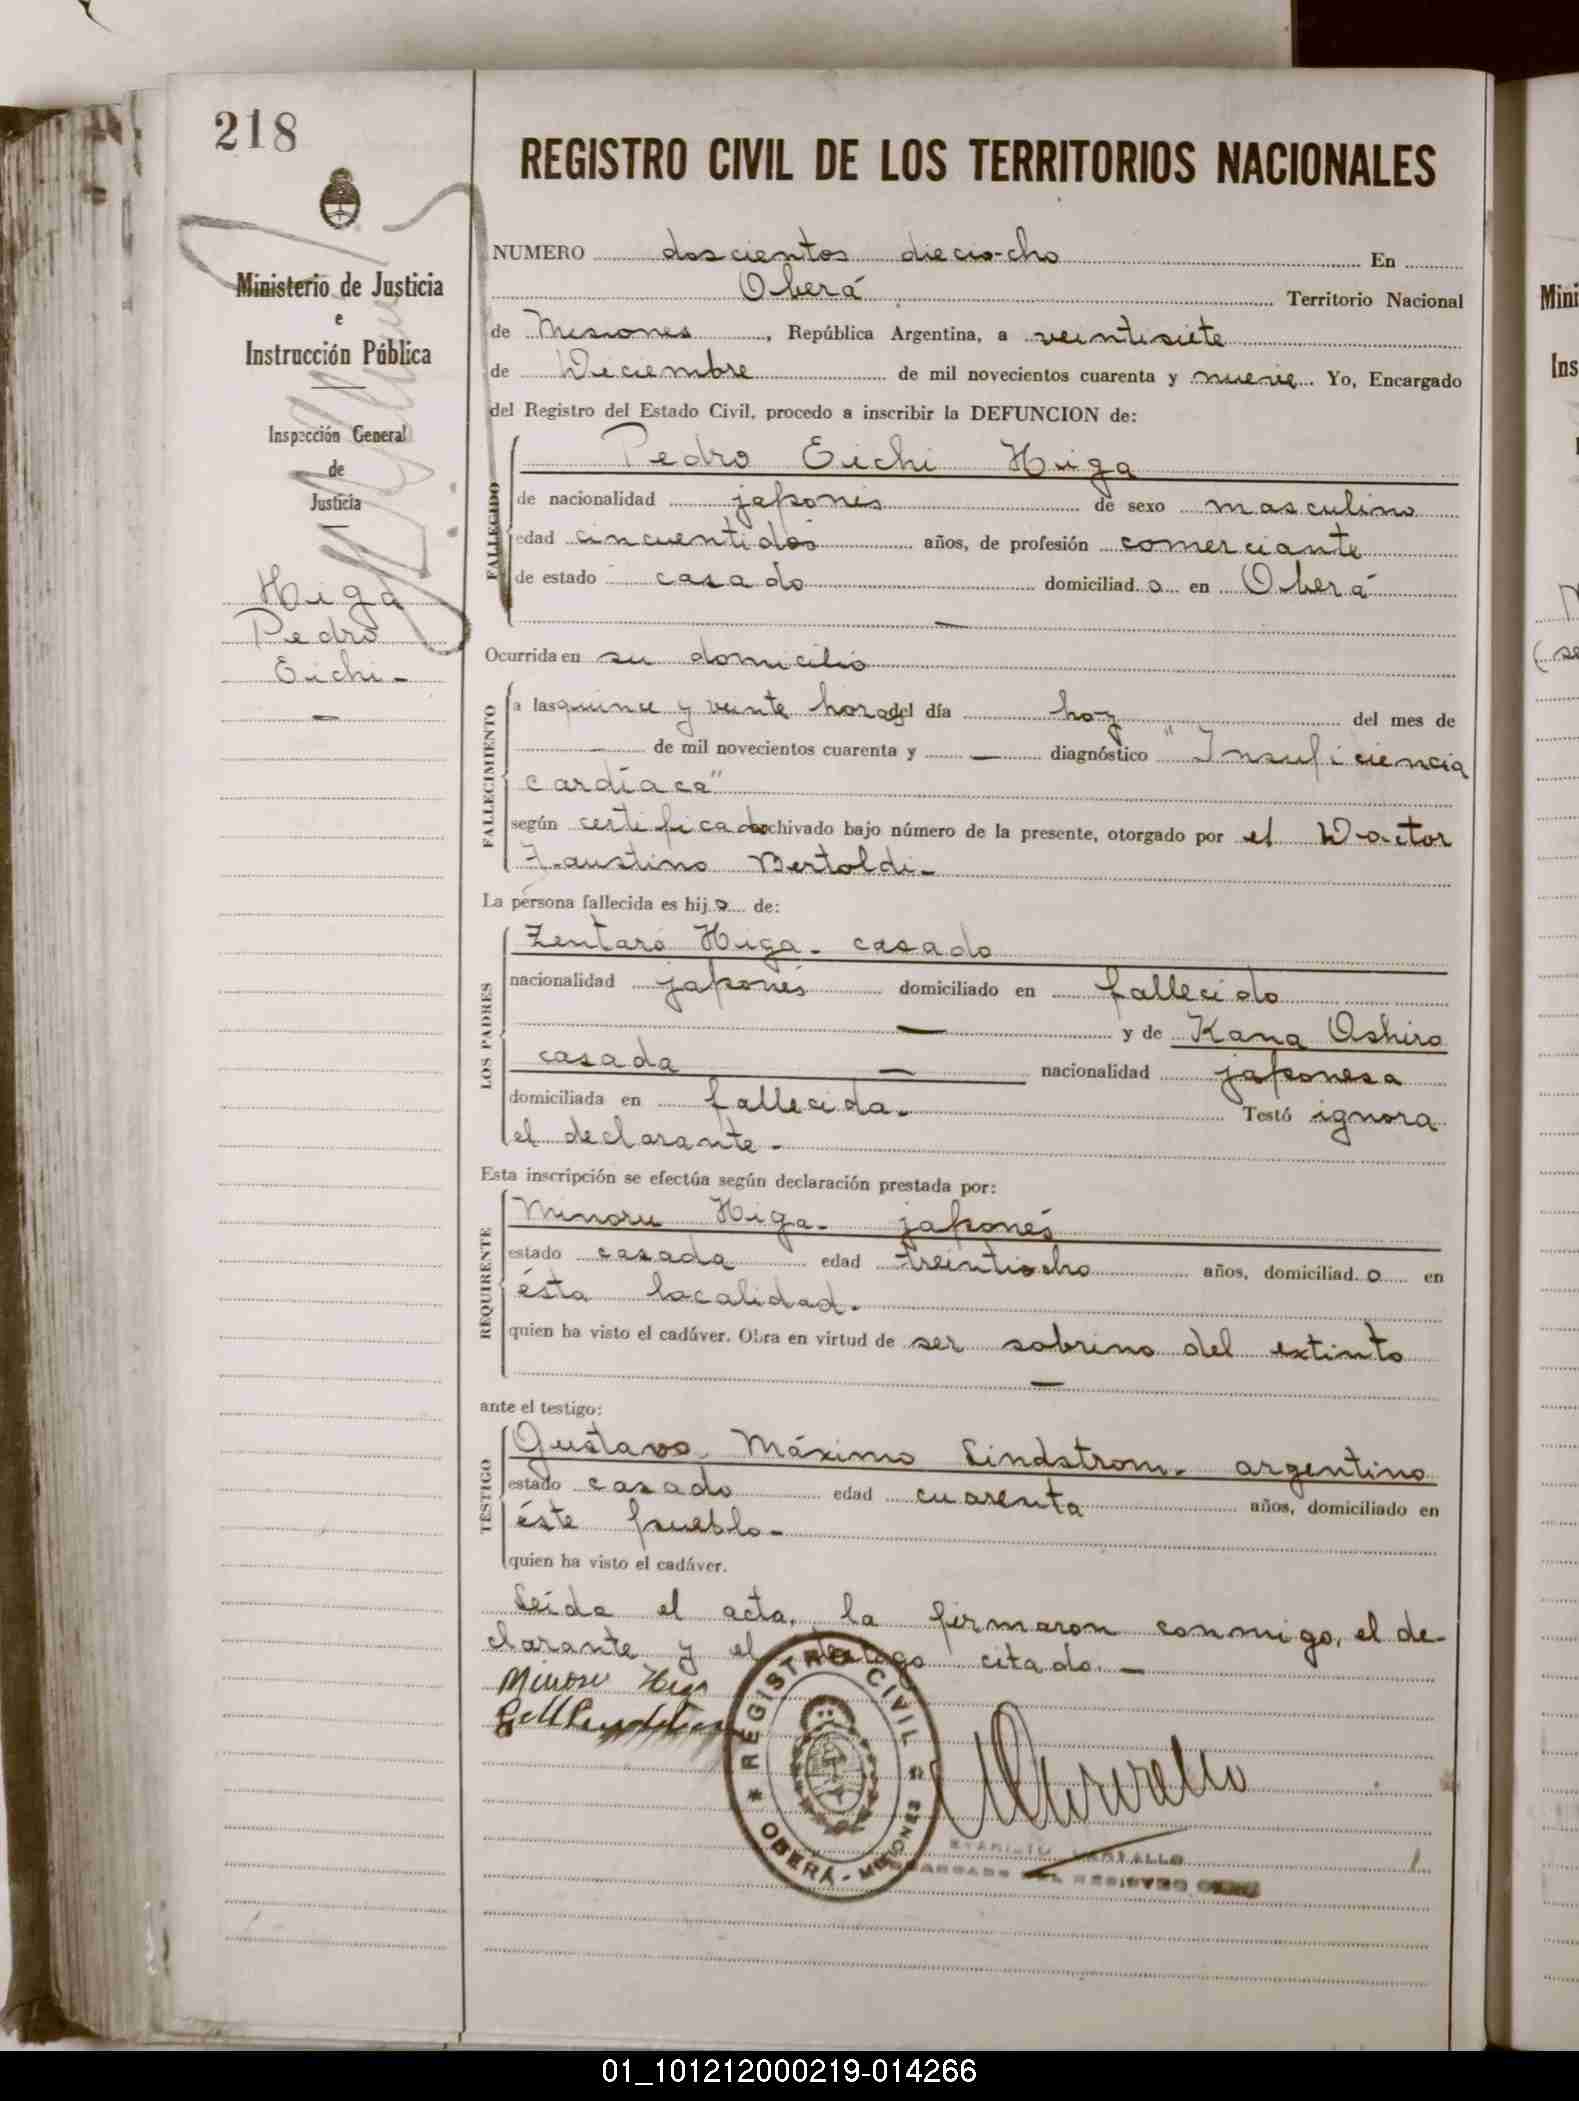 218
REGISTRO CIVIL DE LOS TERRITORIOS NACIONALES
Ministerio de Justicia
e
Instrucción Pública
Inspección General
de
Justicia
Higa
Pedro
Eichi -
NUMERO doscientos diecio-cho En
Oberá Territorio Nacional
de Misiones, República Argentina, a veintisiete
de Diciembre de mil novecientos cuarenta y nueve Yo, Encargado
del Registro del Estado Civil, procedo a inscribir la DEFUNCION de:
FALLECIDO
Pedro Eichi Higa
de nacionalidad japonés de sexo masculino
edad cincuentidos años, de profesión comerciante
de estado casado domiciliad o en Oberá
—
Ocurrida en su domicilio
FALLECIMIENTO
a las quince y veinte horas del día hoy del mes de
— de mil novecientos cuarenta y — diagnóstico "Insuficiencia
cardíaca"
según certificado archivado bajo número de la presente, otorgado por el Doctor
Faustino Bertoldi -
La persona fallecida es hij o de:
LOS PADRES
Zentaró Higa - casado
nacionalidad japonés domiciliado en fallecido
— y de Kana Oshiro
casada — nacionalidad japonesa
domiciliada en fallecida - Testó ignora
el declarante -
Esta inscripción se efectúa según declaración prestada por:
REQUIRENTE
Minoru Higa - japonés
estado casada edad treintiocho años, domiciliad o en
ésta localidad -
quien ha visto el cadáver. Obra en virtud de ser sobrino del extinto
—
ante el testigo:
TESTIGO
Gustavo Máximo Lindstrom - argentino
estado casado edad cuarenta años, domiciliado en
éste pueblo -
quien ha visto el cadáver.
Leída el acta, la firmaron conmigo, el de-
clarante y el testigo citado. —
Minoru Higa
REGISTRO CIVIL
OBERÁ - MISIONES
REGISTRO CIVIL
01_101212000219-014266